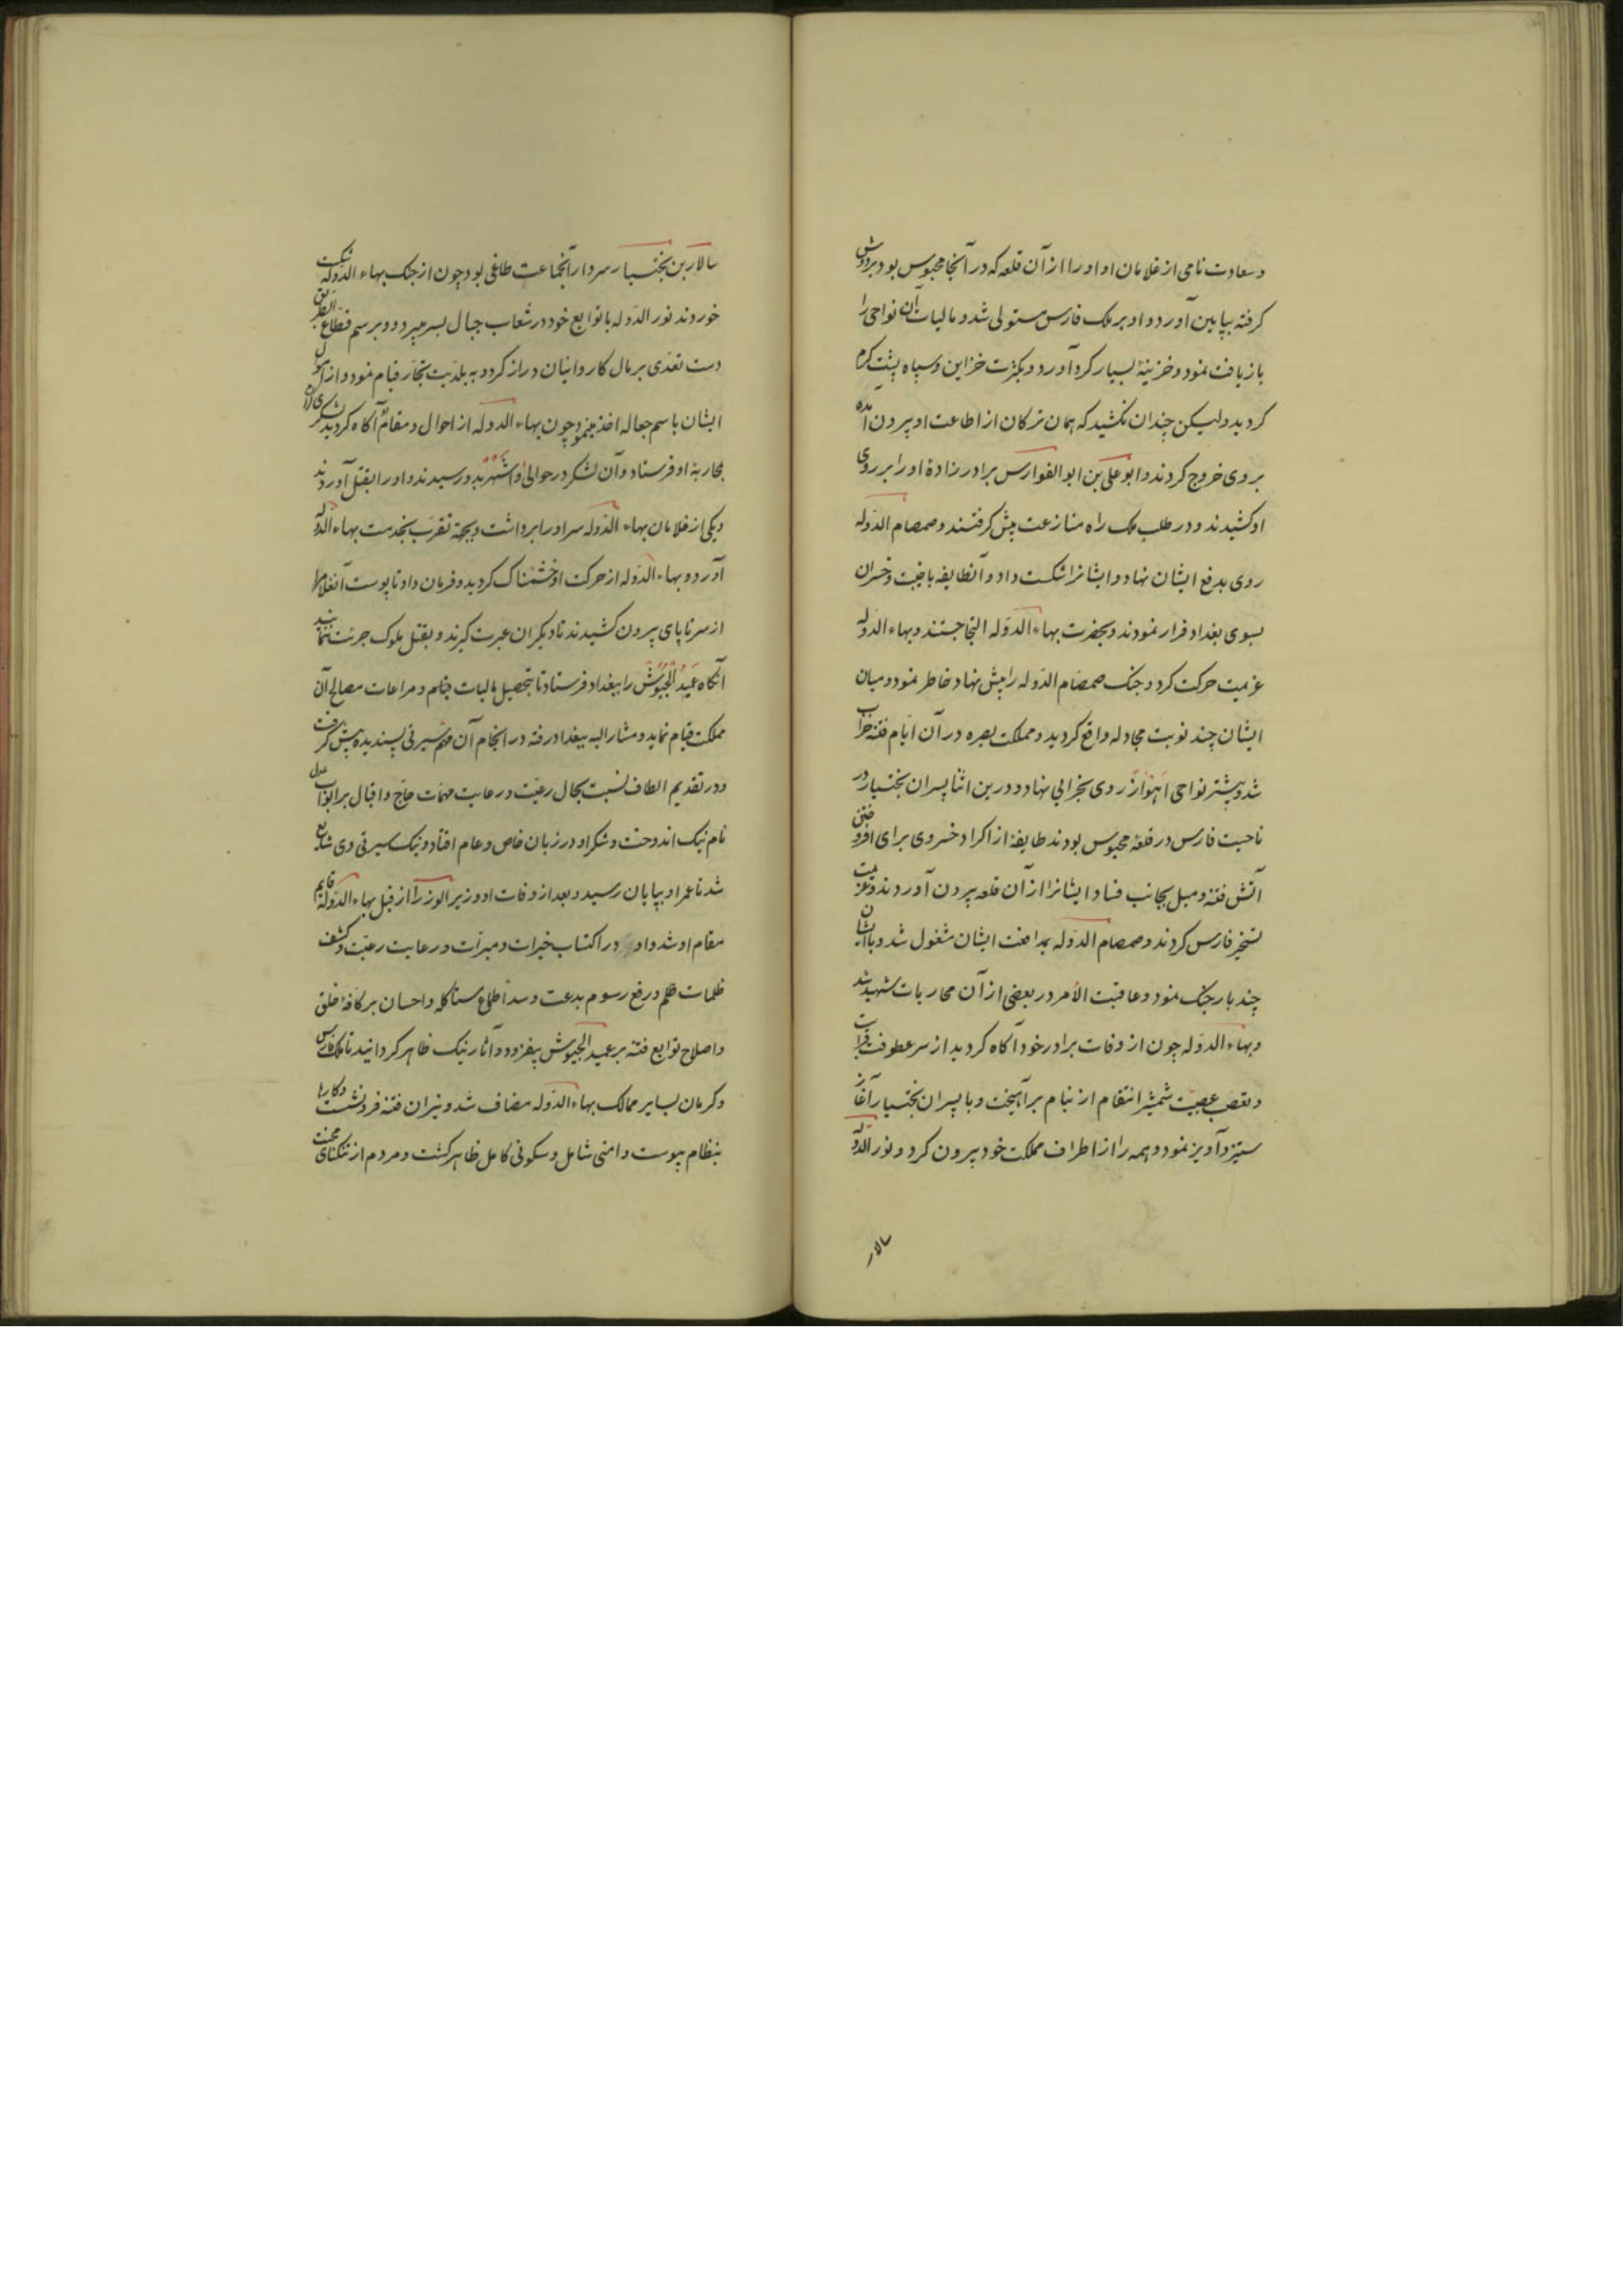 و سعادت نامی از غلامان او او را از آن قلعه که در آنجا محبوس بود بردوش
کرفته بپایین آورد و او بر ملک فارس مستولی شد و مالیات آن نواحی را
بازیافت نمود و خزینهٔ بسیار کرد آورد و بکثرت خزاین و سپاه پشت کرم
کردید ولیکن چندان نکشید که همان ترکان از اطاعت او بیرون آمده
بروی خروج کردند و ابو علی بن ابو الفوارس برادرزادهٔ او را بر روی
او کشیدند و در طلب ملک راه منازعت پیش کرفتند و صمصام الدوله
روی بدفع ایشان نهاد و ایشانرا شکست داد و آنطایفه با خیبت و خسران
بسوی بغداد فرار نمودند و بحضرت بهاء الدوله التجا جستند و بهاء الدوله
عزیمت حرکت کرد و جنک صمصام الدوله را پیش نهاد خاطر نمود و میان
ایشان چند نوبت مجادله واقع کردید و مملکت بصره در آن ایام فتنه خراب
شد و بیشتر نواحی اهواز روی بخرابی نهاد و درین اثنا پسران بختیار در
ناحیت فارس در قلعهٔ محبوس بودند طایفهٔ از اکراد خسروی برای افروختن
آتش فتنه و میل بجانب فساد ایشانرا از آن قلعه بیرون آوردند و عزیمت
تسخیر فارس کردند و صمصام الدوله بمدافعت ایشان مشغول شد و با ایشان
چند بار جنک نمود و عاقبت الامر در بعضی از آن محاربات شهید شد
و بهاء الدوله چون از وفات برادر خود آکاه کردید از سر عطوفت قرابت
و تعصب عصبیت شمشیر انتقام از نیام بر آهیخت و با پسران بختیار آغاز
ستیز و آویز نمود و همه را از اطراف مملکت خود بیرون کرد و نور الدوله
سالار
سالار بن بختیار سردار آنجماعت طاغی بود چون از جنک بهاء الدوله شکست
خوردند نور الدوله با توابع خود در شعاب جبال بسر میبرد و برسم قطاع الطریق
دست تعدی بر مال کاروانیان دراز کرد و به بلدیت تجار قیام نمود و از اموال
ایشان باسم جعاله اخذ مینمود چون بهاء الدوله از احوال و مقام او آکاه کردید لشکری
بمحاربهٔ او فرستاد و آن لشکر در حوالی بدو رسیدند و او را بقتل آوردند
و یکی از غلامان بهاء الدوله سر او را برداشت و بجهة تقرب بخدمت بهاء الدوله
آورد و بهاء الدوله از حرکت او خشمناک کردید و فرمان داد تا پوست آنغلام را
از سر تا پای بیرون کشیدند تا دیکران عبرت کیرند و بقتل ملوک جرئت ننمایند
آنکاه عمید الجیوش را ببغداد فرستاد تا بتحصیل مالیات قیام و مراعات مصالح آن
مملکت قیام نماید و مشار الیه ببغداد رفته در انجام آن مهم سیرتی پسندیده پیش کرفت
و در تقدیم الطاف نسبت بحال رعیت و رعایت مهمات حاج و اقبال بر ابواب عدل
نام نیک اندوخت و شکر او در زبان خاص و عام افتاد و نیک سیرتی وی شایع
شد تا عمر او بپایان رسید و بعد از وفات او وزیر الوزرا از قبل بهاء الدوله قایم
مقام او شد و او در اکتساب خیرات و مبرات و رعایت رعیت و کشف
ظلمات ظلم و رفع رسوم بدعت و سد اطماع ستاکله و احسان بر کافهٔ خلق
و اصلاح توابع فتنه بر عمید الجیوش بیفزود و آثار نیک ظاهر کردانید تا ملک فارس
و کرمان بسایر ممالک بهاء الدوله مضاف شد و نیران فتنه فرو نشست و کارها
بنظام پیوست و امنی شامل و سکونی کامل ظاهر کشت و مردم از تنکنای محنت